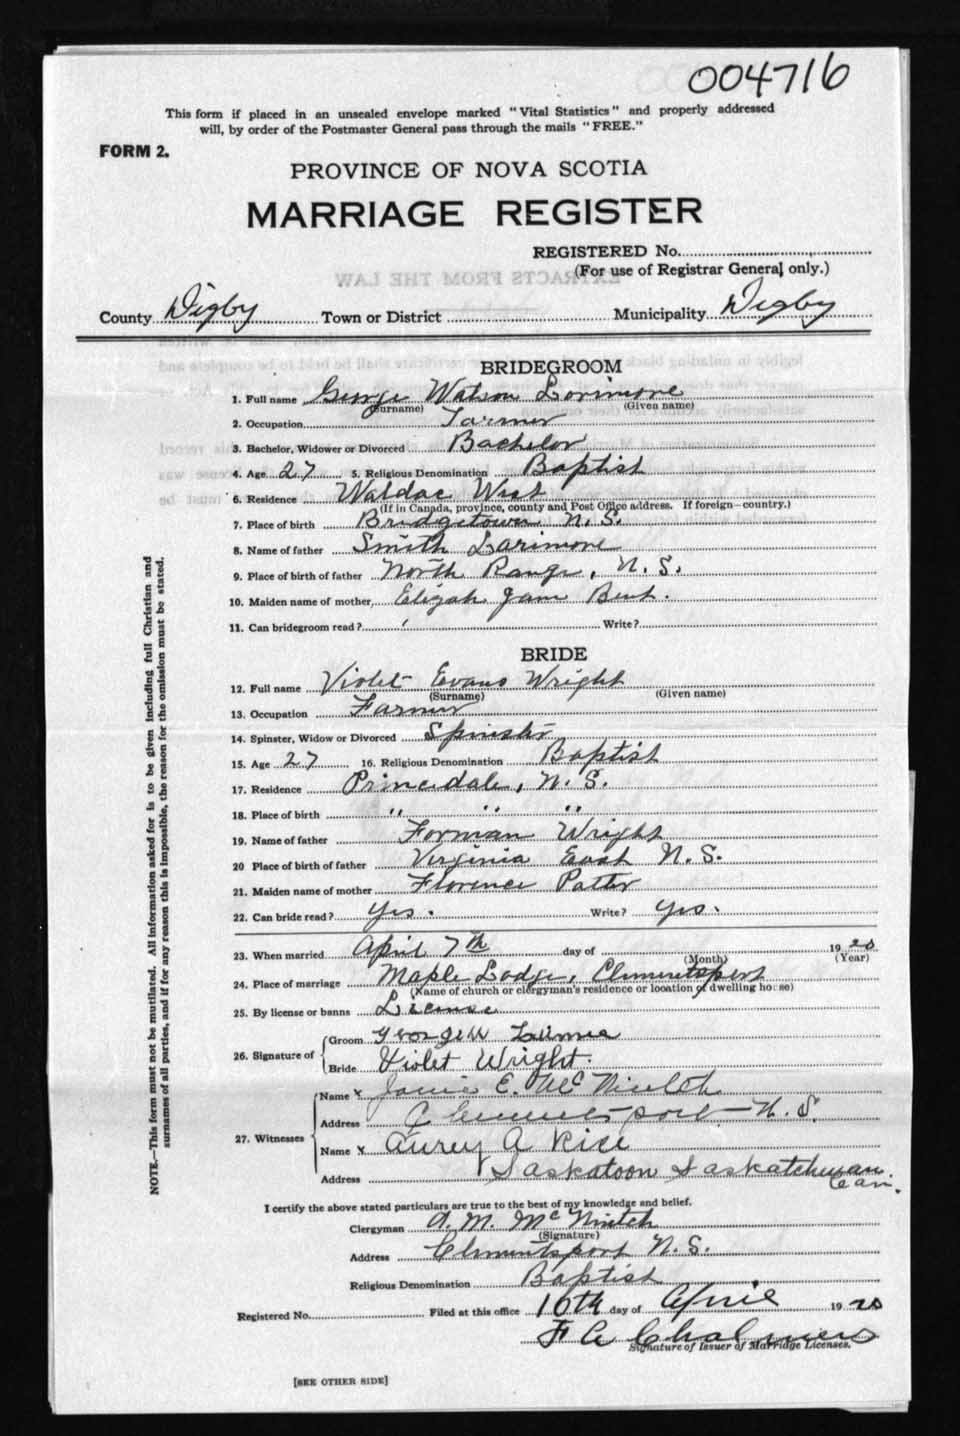 004716
This form if placed in an unsealed envelope marked "Vital Statistics" and properly addressed
will, by order of the Postmaster General pass through the mails "FREE."
FORM 2.
PROVINCE OF NOVA SCOTIA
MARRIAGE REGISTER
REGISTERED No.
(For use of Registrar General only.)
EXTRACTS FROM THE LAW
County Digby Town or District Municipality Digby
BRIDEGROOM
1. Full name George Watson Lorimore
(Surname) (Given name)
2. Occupation Farmer
3. Bachelor, Widower or Divorced Bachelor
4. Age 27 5. Religious Denomination Baptist
6. Residence Waldac West
(If in Canada, province, county and Post Office address. If foreign—country.)
7. Place of birth Bridgetown N.S.
8. Name of father Smith Larimore
9. Place of birth of father North Range, N.S.
10. Maiden name of mother Elizah Jane Bent.
11. Can bridegroom read? Write?
BRIDE
12. Full name Violet Evans Wright
(Surname) (Given name)
13. Occupation Farmer
14. Spinster, Widow or Divorced Spinster
15. Age 27 16. Religious Denomination Baptist
17. Residence Princedale, N.S.
18. Place of birth " " "
19. Name of father Forman Wright
20 Place of birth of father Virginia East N.S.
21. Maiden name of mother Florence Potter
22. Can bride read? Yes. Write? Yes.
23. When married April 7th day of 1920
(Month) (Year)
24. Place of marriage Maple Lodge, Clementsport
(Name of church or clergyman's residence or location of dwelling house)
25. By license or banns License
26. Signature of Groom George W
Bride Violet Wright.
27. Witnesses Name x Janie E. McNintch
Address Clementsport N.S.
Name x Aurey A Rice
Address Saskatoon Saskatchewan
Can.
I certify the above stated particulars are true to the best of my knowledge and belief.
Clergyman A. M. McNintch
(Signature)
Address Clementsport N.S.
Religious Denomination Baptist
Registered No. Filed at this office 10th day of April 1920
F A Chalmers
Signature of Issuer of Marriage Licenses.
[SEE OTHER SIDE]
NOTE.—This form must not be mutilated. All information asked for is to be given including full Christian and
surnames of all parties, and if for any reason this is impossible, the reason for the omission must be stated.